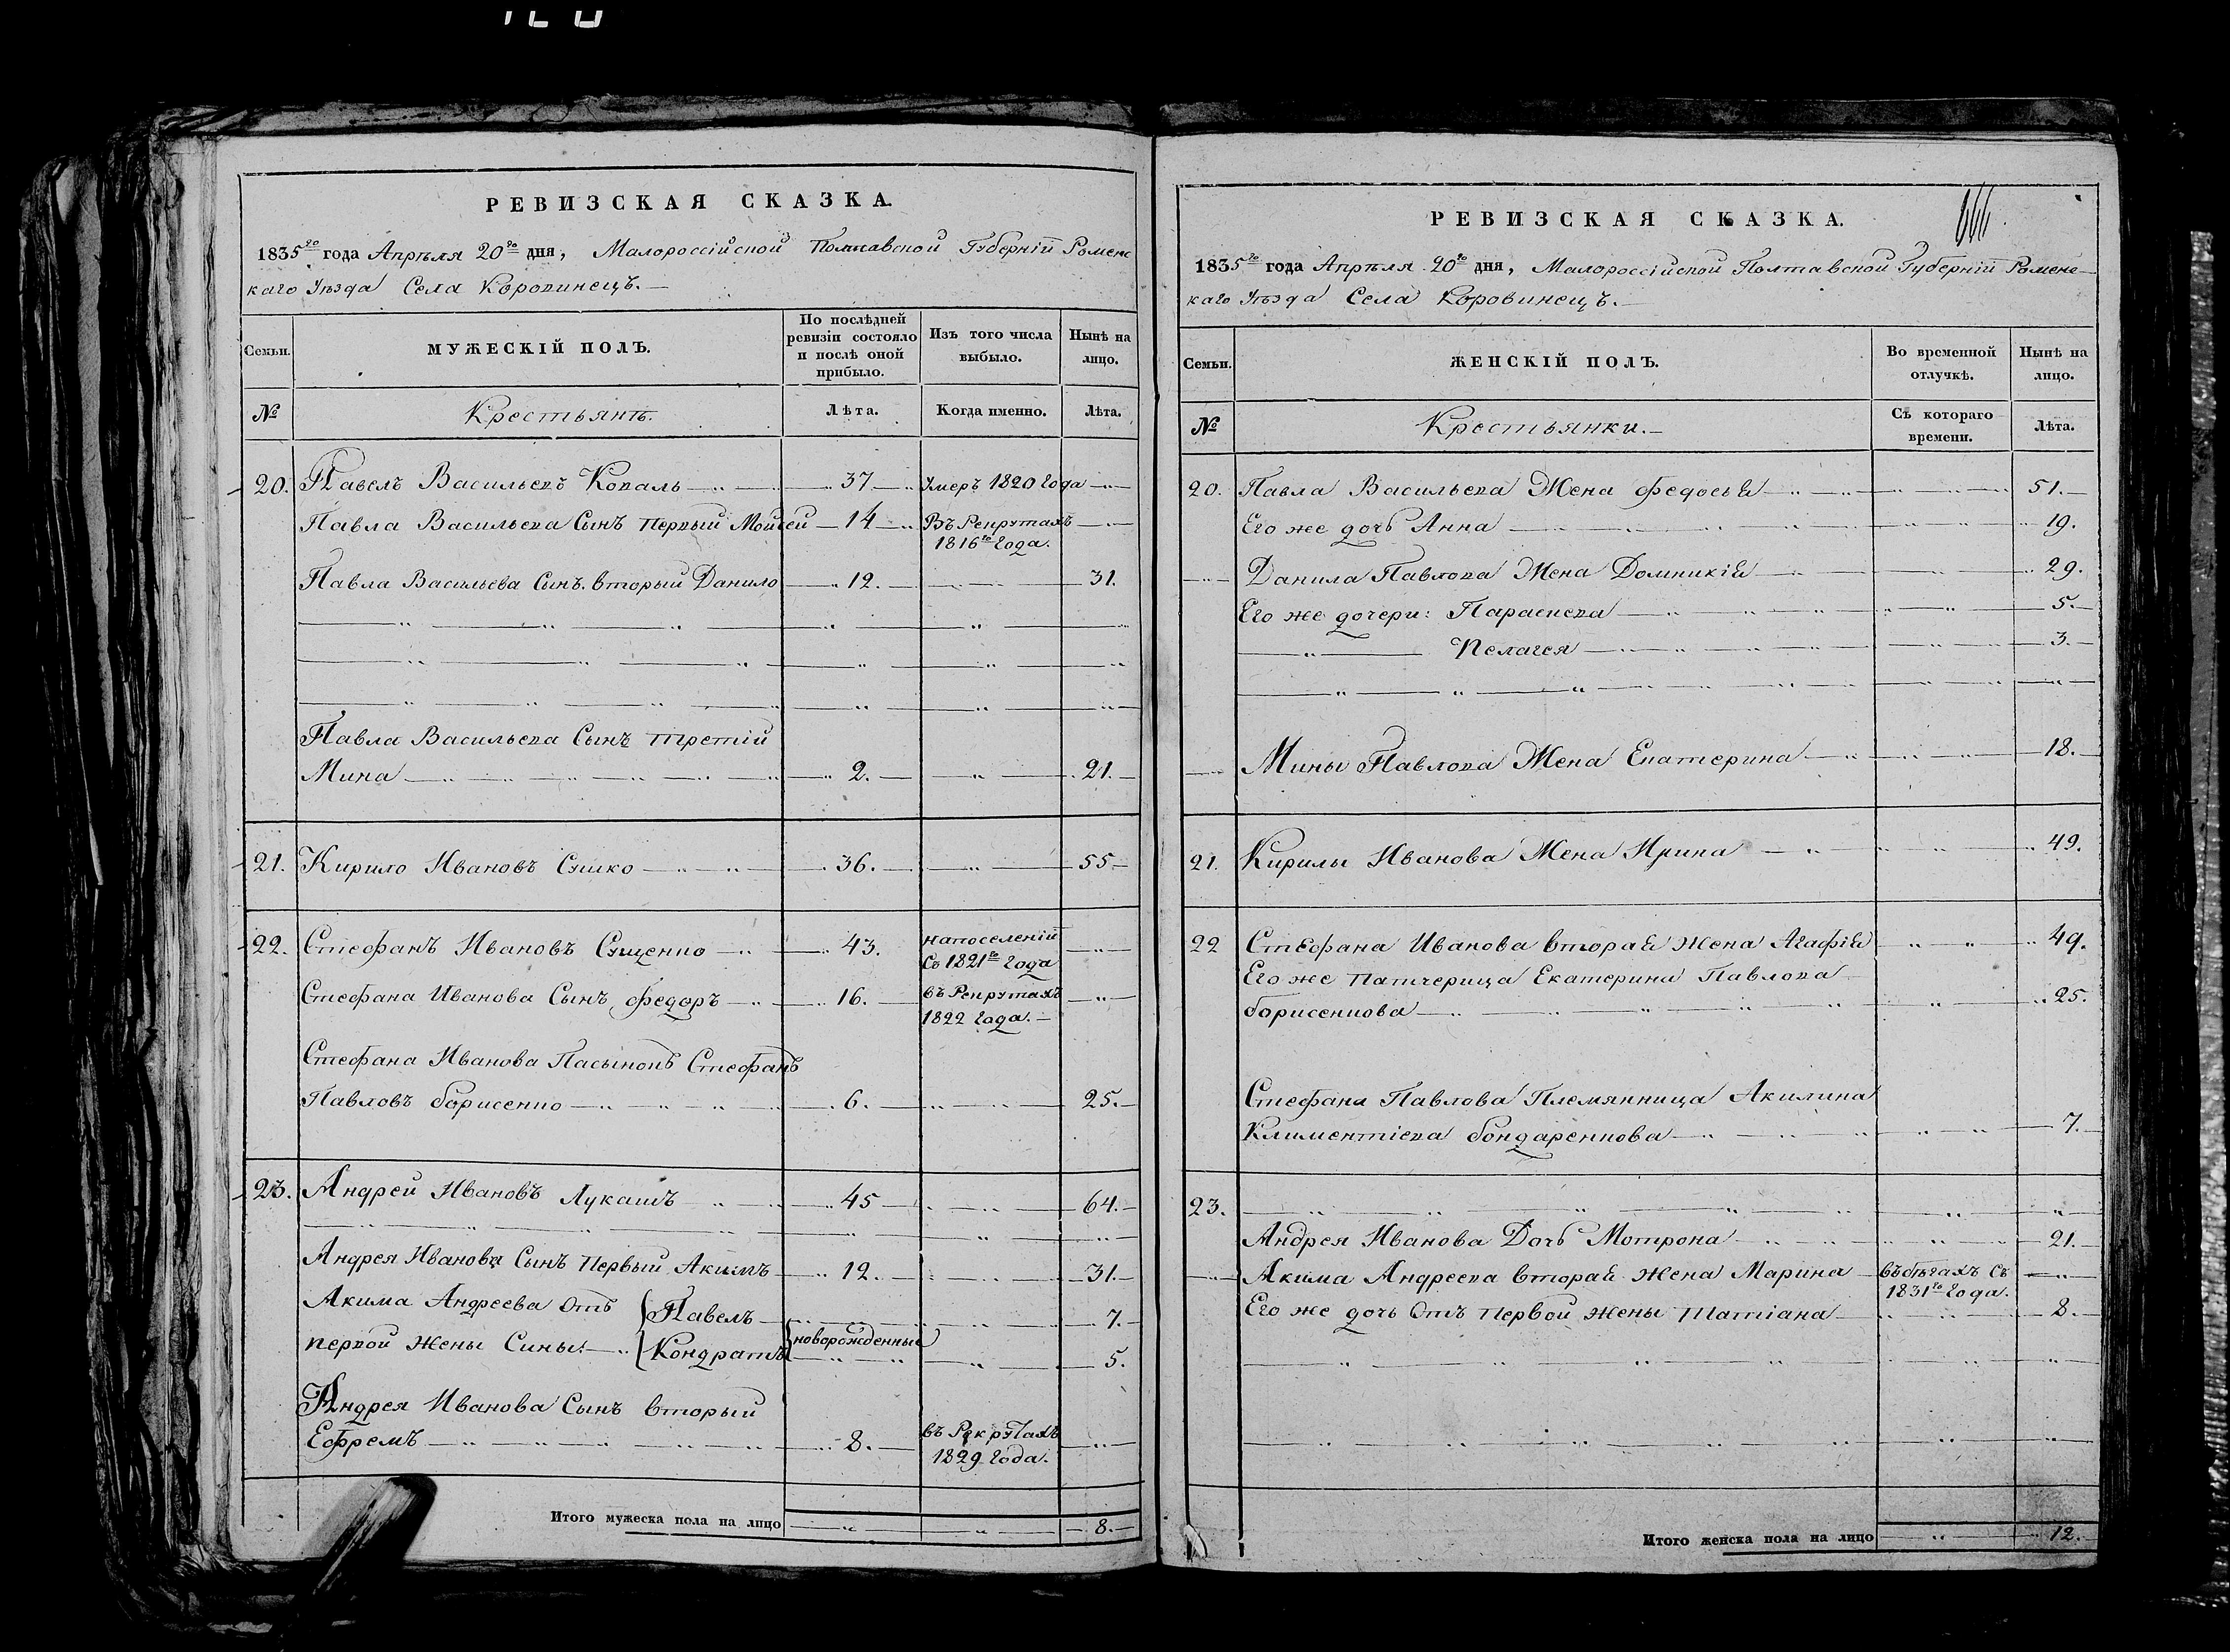 РЕВИЗСКАЯ СКАЗКА.
1835го года Апрѣля 20го дня, Малороссійской Полтавской Губерніи Роменс
каго Уѣзда Села Коровинецъ.
Семьи.
МУЖЕСКІЙ ПОЛЪ.
По послѣдней ревизіи состояло и послѣ оной прибыло.
Изъ того числа выбыло.
Нынѣ на лицо.
№
Крестьянъ.
Лѣта.
Когда именно.
Лѣта.
20. Павелъ Васильевъ Коваль 37 Умеръ 1820 года
Павла Васильева Сынъ Первый Мойсей 14 Въ Рекрутахъ
1816го года.
Павла Васильева Сынъ вторый Данило 12. 31.
Павла Васильева Сынъ Третій
Мина 2. 21.
21. Кирило Ивановъ Сушко 36. 55
22. Стефанъ Ивановъ Сущенко 43. на поселеніи
Съ 1821го года
Стефана Иванова Сынъ Федоръ 16. въ Рекрутахъ
1822 года.
Стефана Иванова Пасынокъ Стефанъ
Павловъ Борисенко 6. 25.
23. Андрей Ивановъ Лукашъ 45 64.
Андрея Иванова Сынъ Первый Акимъ 12. 31.
Акима Андреева Отъ Павелъ 7.
первой Жены Сыны: Кондратъ новорожденные 5.
Андрея Иванова Сынъ Вторый
Ефремъ 8. въ Рекрутахъ
1829 года.
Итого мужеска пола на лицо 8.
РЕВИЗСКАЯ СКАЗКА.
1835го года Апрѣля 20го дня, Малороссійской Полтавской Губерніи Роменс-
каго Уѣзда Села Коровинецъ.
Семьи.
ЖЕНСКІЙ ПОЛЪ.
Во временной отлучкѣ.
Нынѣ на лицо.
№
Крестьянки.
Съ котораго времени.
Лѣта.
20. Павла Васильева Жена Федосья 51.
Его же дочь Анна 19.
Данила Павлова Жена Домникія 29.
Его же дочери: Параскева 5.
Пелагея 3.
Мины Павлова Жена Екатерина 18.
21. Кирилы Иванова Жена Ирина 49.
22 Стефана Иванова вторая Жена Агафія 49.
Его же Патчерица Екатерина Павлова
Борисенкова 25.
Стефана Павлова Племянница Акилина
Климентіева Бондаренкова 7.
23.
Андрея Иванова Дочь Мотрона 21.
Акима Андреева вторая Жена Марина въ бѣгахъ съ
1831го года.
Его же дочь Отъ первой жены Татіана 8.
Итого женска пола на лицо 12.